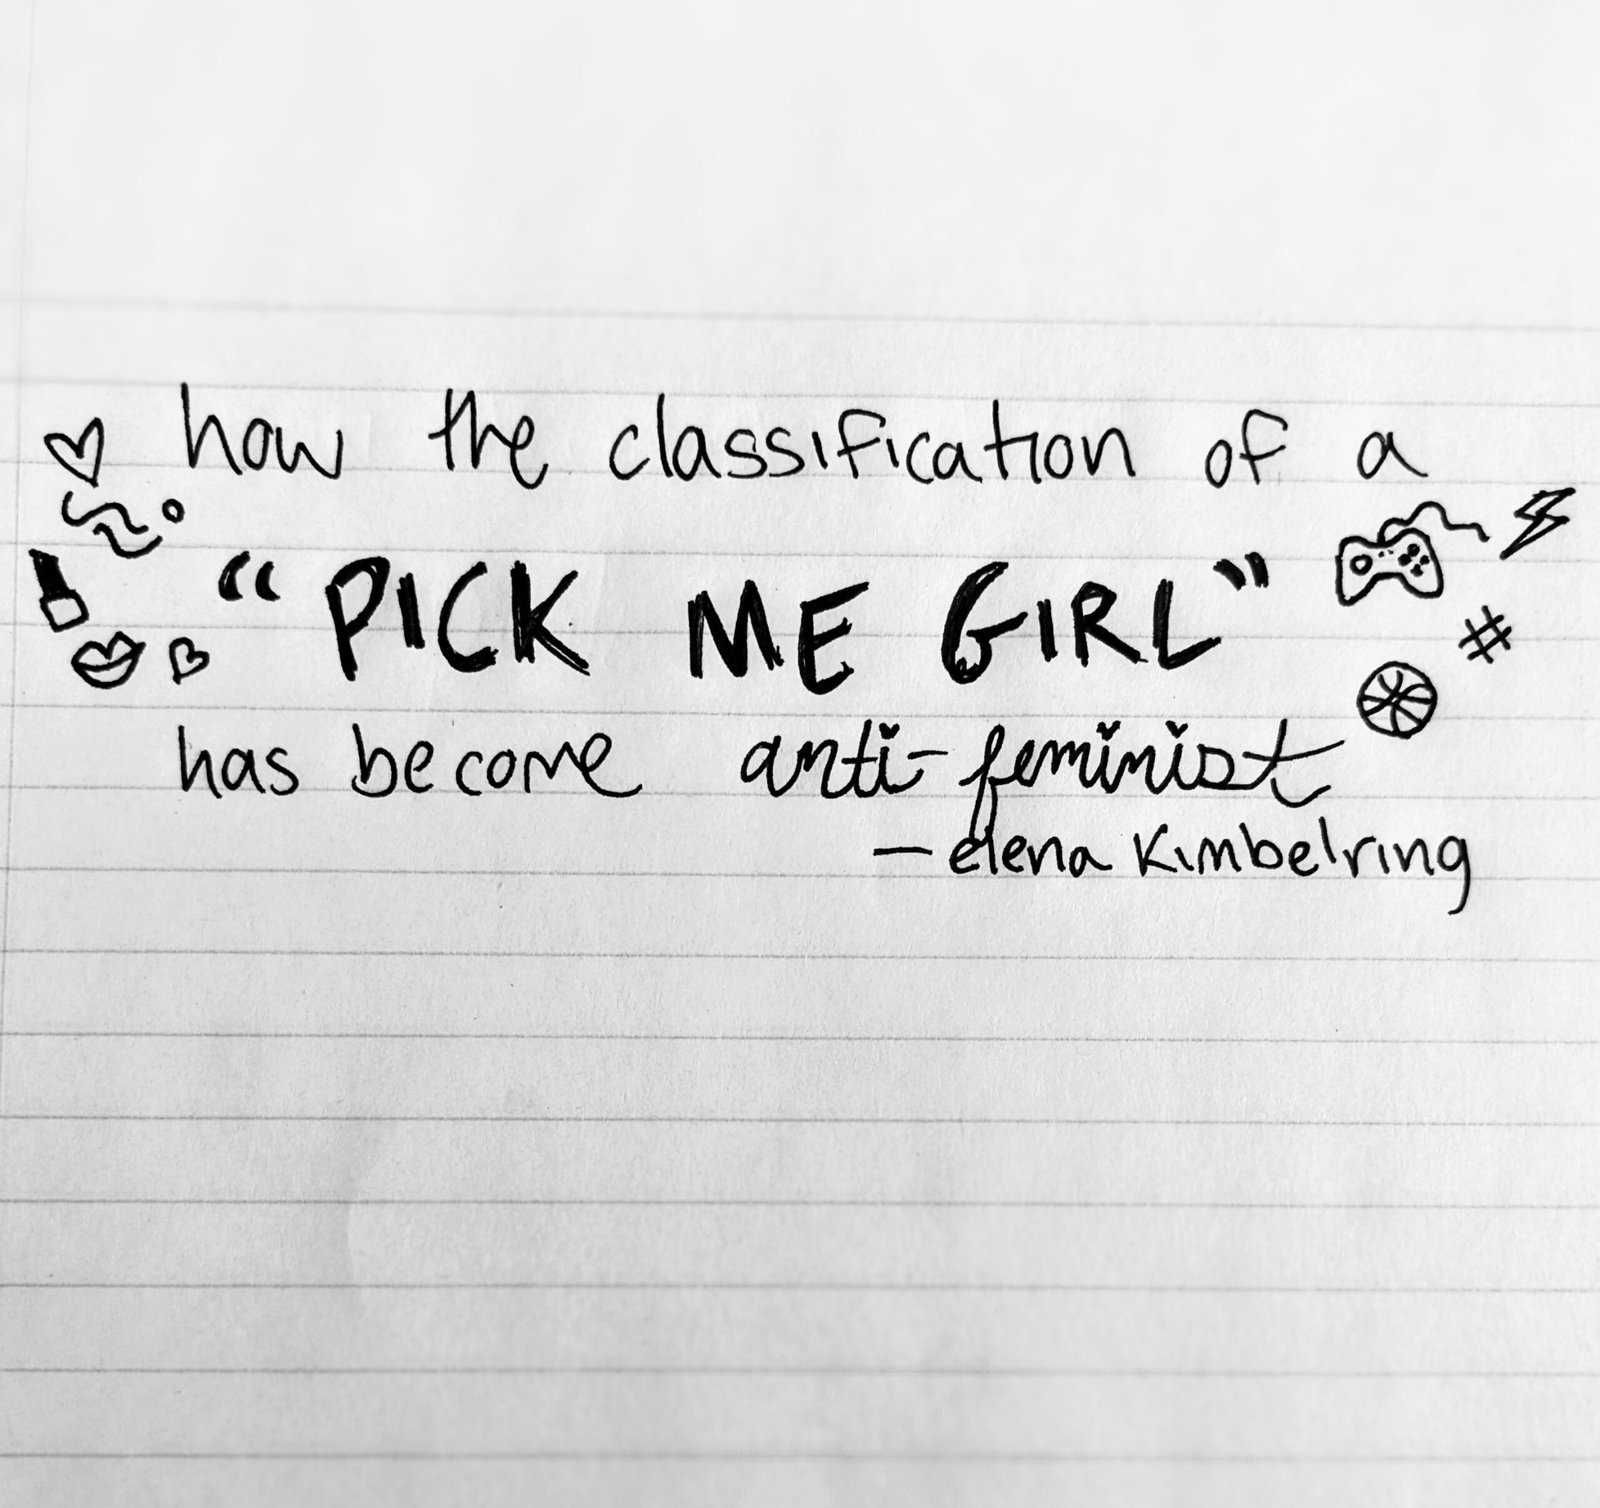 how the classification of a
"PICK ME GIRL"
has become anti-feminist
— elena Kimbelring